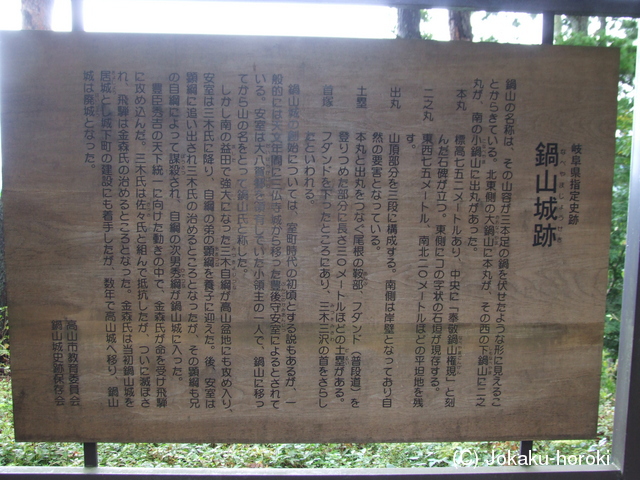 岐阜県指定史跡
鍋山城跡
なべやまじょうせき
鍋山の名称は、その山容が三本足の鍋を伏せたような形に見えるこ
とからきている。北東側の大鍋山に本丸が、その西の下鍋山に二之
丸が、南の小鍋山に出丸があった。
本丸　標高七五二メートルあり、中央に「奉敬鍋山権現」と刻
んだ石碑が立つ。東側にコの字状の石垣が現存する。
二之丸　東西七五メートル、南北三〇メートルほどの平坦地を残
す。
出丸　山頂部分を三段に構成する。南側は岸壁となっており自
然の要害となっている。
土塁　本丸と出丸をつなぐ尾根の鞍部、フダンド（普段道）を
登りつめた部分に長さ三〇メートルほどの土塁がある。
首塚　フダンドを下ったところにあり、三木三沢の首をさらし
たといわれる。
鍋山城の創始については、室町時代の初頃とする説もあるが、一
般的には天文年間に三仏寺城から移った豊後守安室によるとされて
いる。安室は大八賀郷を領有していた小領主の一人で、鍋山に移っ
てから山の名をとって鍋山氏と称した。
しかし南の益田で強大になった三木自綱が高山盆地にも攻め入り、
安室は三木氏に降り、自綱の弟の顕綱を養子に迎えた。後、安室は
顕綱に追い出され三木氏の治めるところとなったが、その顕綱も兄
の自綱によって謀殺され、自綱の次男秀綱が鍋山城に入った。
豊臣秀吉の天下統一に向けた動きの中で、金森氏が命を受け飛騨
に攻め込んだ。三木氏は佐々氏と組んで抵抗したが、ついに滅ぼさ
れ、飛騨は金森氏の治めるところとなった。金森氏は当初鍋山城を
居城とし城下町の建設にも着手したが、数年で高山城へ移り、鍋山
城は廃城となった。
高山市教育委員会
鍋山城史跡保存会
(C) Jokaku-horoki.